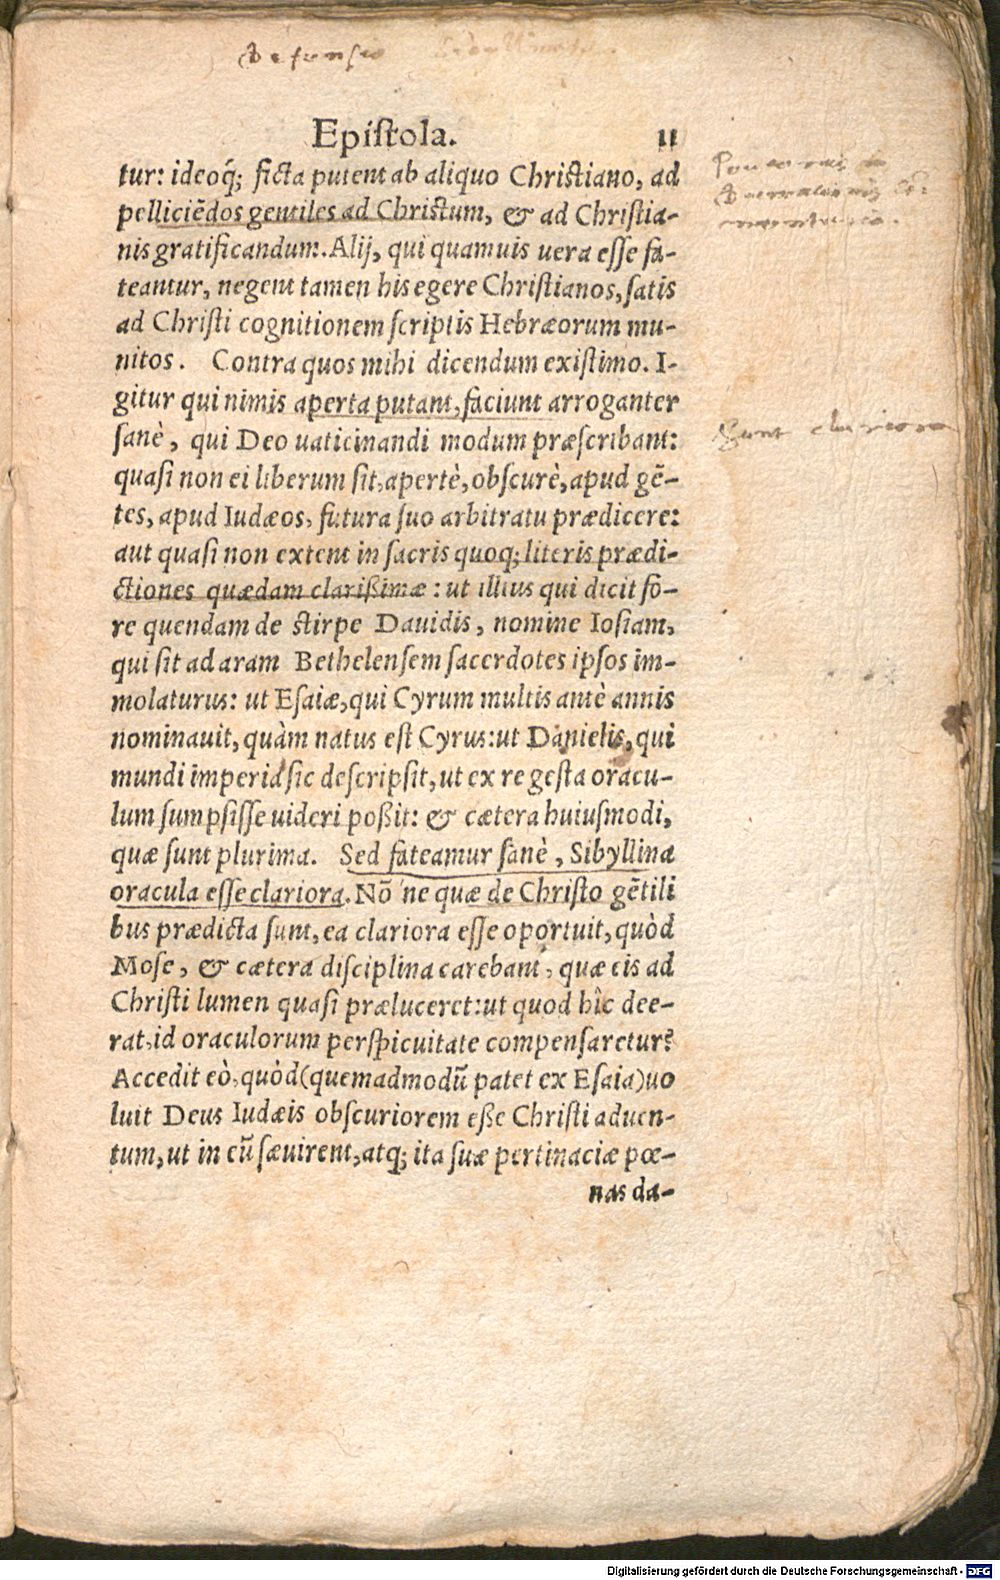 Defensio
Epistola. 11
tur: ideoq́; ficta putent ab aliquo Christiano, ad
pelliciẽdos gentiles ad Christum, & ad Christia-
nis gratificandum. Alij, qui quamuis uera esse fa-
teantur, negent tamen his egere Christianos, satis
ad Christi cognitionem scriptis Hebræorum mu-
nitos. Contra quos mihi dicendum existimo. I-
gitur qui nimis aperta putant, faciunt arroganter
sanè, qui Deo uaticinandi modum præscribant:
quasi non ei liberum sit, apertè, obscurè, apud gẽ-
tes, apud Iudæos, futura suo arbitratu prædicere:
aut quasi non extent in sacris quoq; literis prædi-
ctiones quædam clarißimæ: ut illius qui dicit fo-
re quendam de stirpe Dauidis, nomine Iosiam,
qui sit ad aram Bethelensem sacerdotes ipsos im-
molaturus: ut Esaiæ, qui Cyrum multis antè annis
nominauit, quàm natus est Cyrus: ut Danielis, qui
mundi imperia sic descripsit, ut ex re gesta oracu-
lum sumpsisse uideri poßit: & cætera huiusmodi,
quæ sunt plurima. Sed fateamur sanè, Sibyllina
oracula esse clariora. Nõ ne quæ de Christo gẽtili
bus prædicta sunt, ea clariora esse oportuit, quòd
Mose, & cætera disciplina carebant, quæ eis ad
Christi lumen quasi præluceret: ut quod hîc dee-
rat, id oraculorum perspicuitate compensaretur?
Accedit eò, quòd (quemadmodũ patet ex Esaia) uo
luit Deus Iudæis obscuriorem eße Christi aduen-
tum, ut in eũ sæuirent, atq; ita suæ pertinaciæ pœ-
nas da-
Sunt clariora
Digitalisierung gefördert durch die Deutsche Forschungsgemeinschaft - DFG